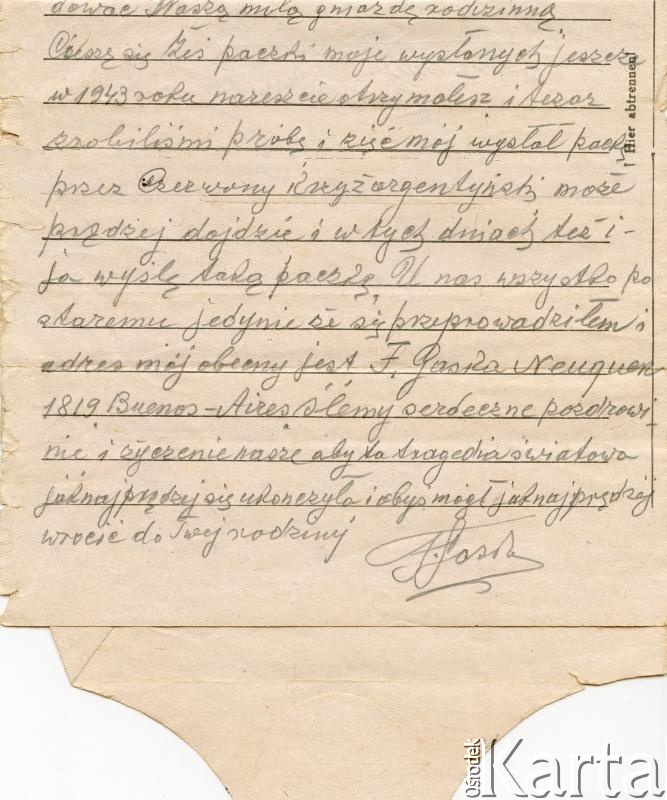 dować Naszą miłą gniazdę rodzinną
Cieszę się żeś paczki moje wysłanych jeszcze
w 1943 roku nareszcie otrzymałesz i teraz
zrobiliśmi próbę i zięć mój wysłał paczkę
przez Czerwony Krzyż argentyńskij może
prędzej dojdzie i w tych dniach też i-
ja wyślę taką paczkę, U nas wszystko po
staremu jedynie że się przeprowadziłem i
adres mój obecny jest F. Gaska Neuquen
1819 Buenos-Aires Ślemy serdeczne pozdrowi-
nie i życzenie nasze aby ta tragedia światowa
jaknajprędzej się ukończyła i obyś mógł jaknajprędzej
wrócić do Twej rodziny
Hier abtrennen!
ośrodek
Karta